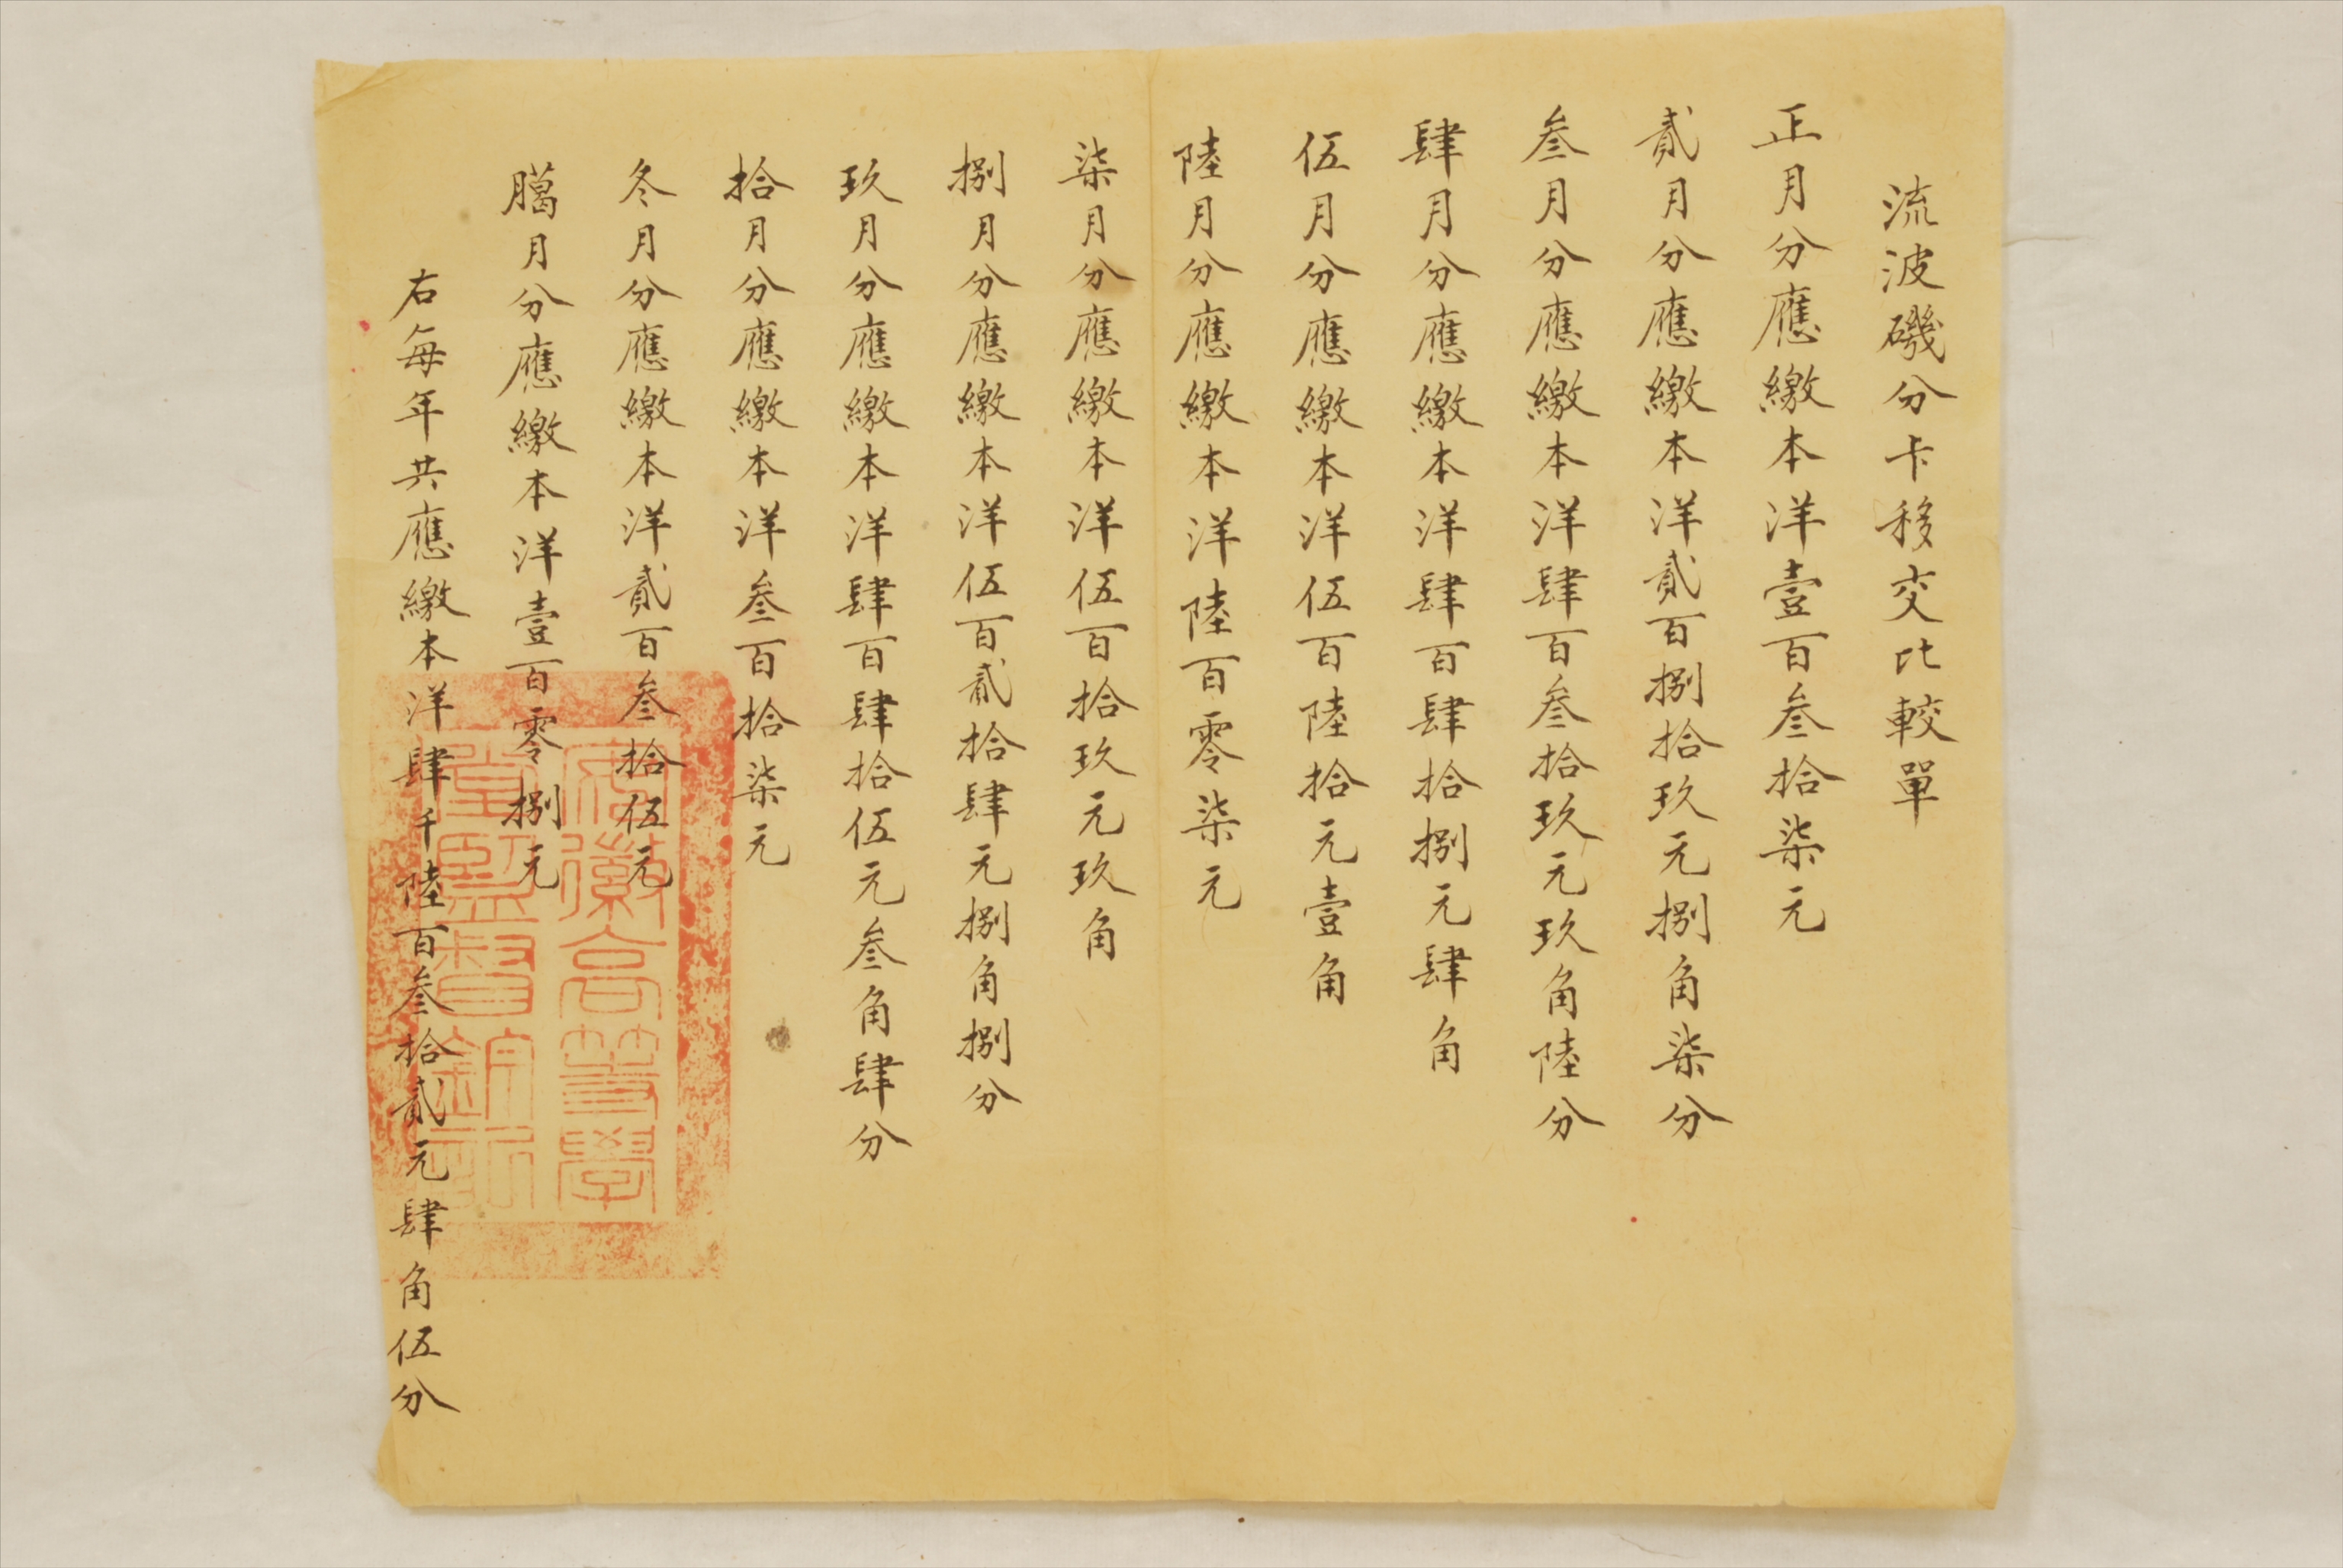 流波磯分卡移交比較單
正月分應繳本洋壹百叁拾柒元
貳月分應繳本洋貳百捌拾玖元捌角柒分
叁月分應繳本洋肆百叁拾玖元玖角陸分
肆月分應繳本洋肆百肆拾捌元肆角
伍月分應繳本洋伍百陸拾元壹角
陸月分應繳本洋陸百零柒元
柒月分應繳本洋伍百拾玖元玖角
捌月分應繳本洋伍百貳拾肆元捌角捌分
玖月分應繳本洋肆百肆拾伍元叁角肆分
拾月分應繳本洋叁百拾柒元
冬月分應繳本洋貳百叁拾伍元
臈月分應繳本洋壹百零捌元
右每年共應繳本洋肆千陸百叁拾貳元肆角伍分
安徽高等學
堂監督鈐記